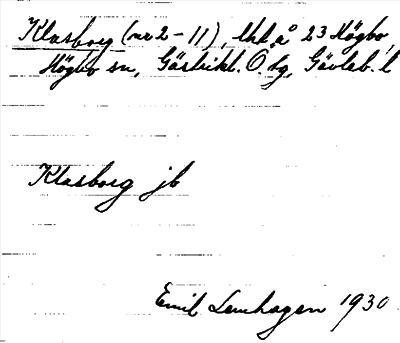 Klasborg (nr 2-11), lhl å 23 Högbo,
Högbo sn, Gästrikl. Ö. hg, Gävleb. l
Klasborg jb
Emil Lemhagen 1930